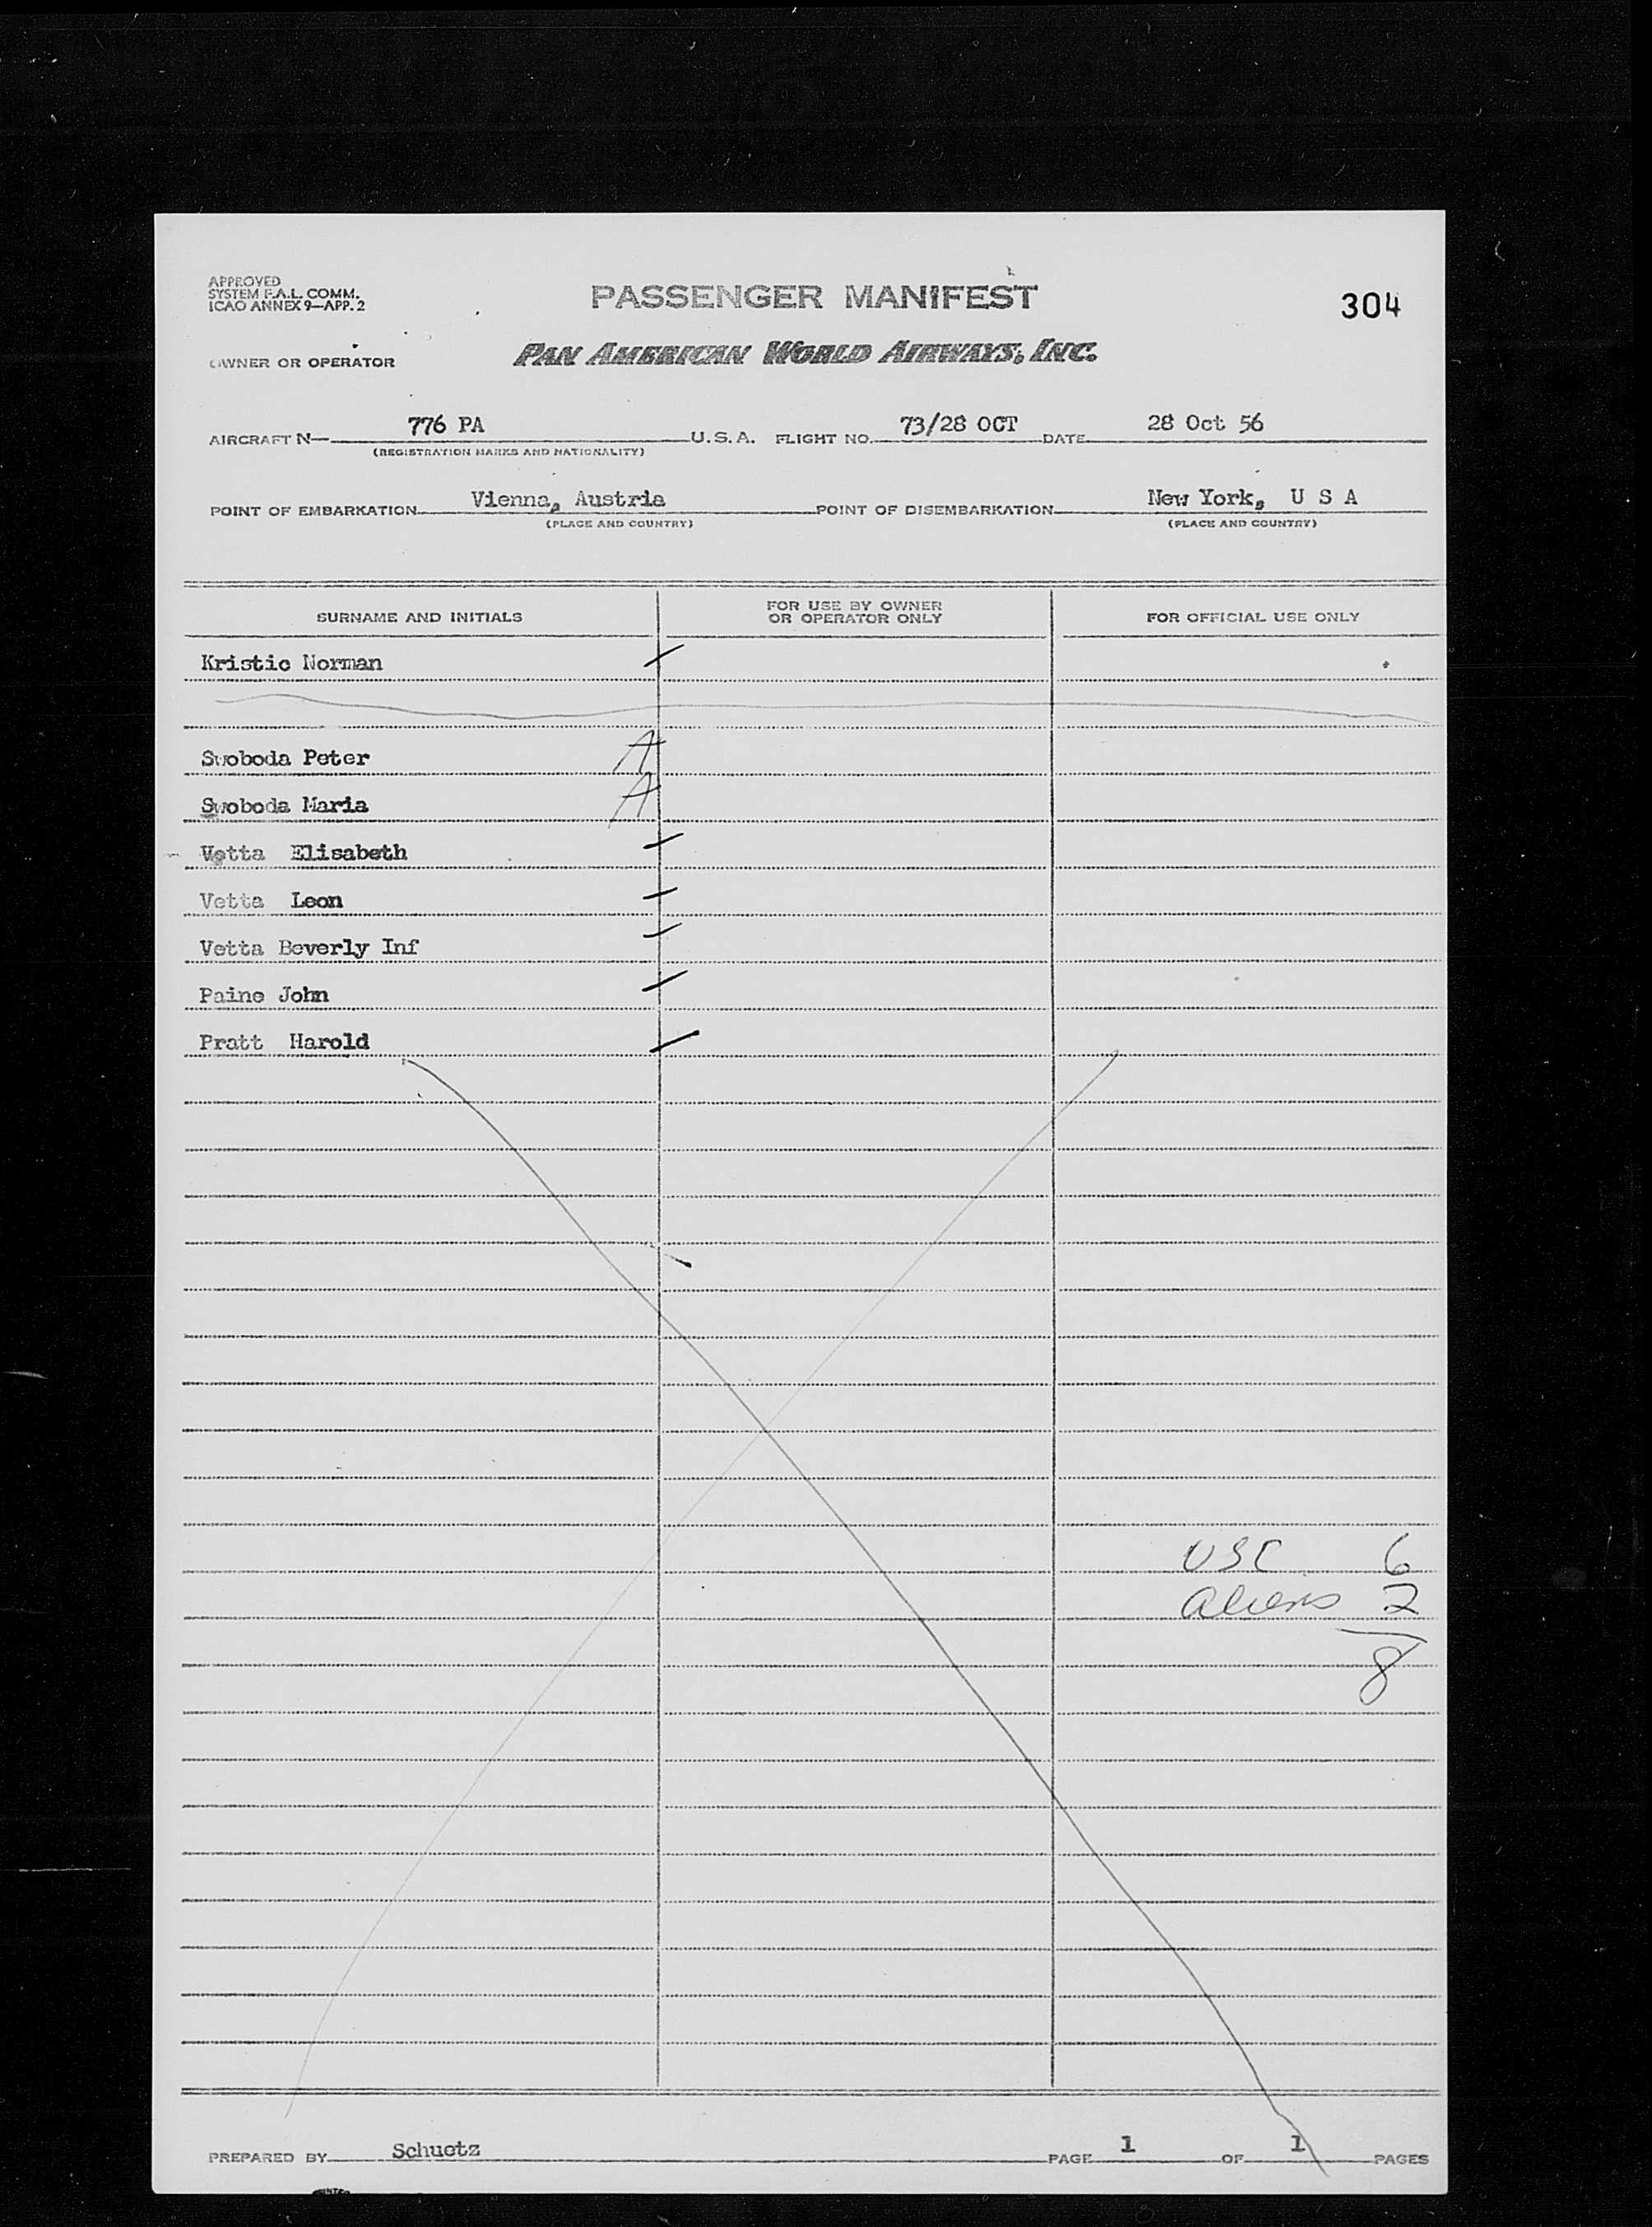 APPROVED
SYSTEM F.A.L. COMM.
ICAO ANNEX 9—APP. 2
PASSENGER MANIFEST
304
OWNER OR OPERATOR
PAN AMERICAN WORLD AIRWAYS, INC.
AIRCRAFT N— 776 PA U.S.A. FLIGHT NO. 73/28 OCT DATE 28 Oct 56
(REGISTRATION MARKS AND NATIONALITY)
POINT OF EMBARKATION Vienna, Austria POINT OF DISEMBARKATION New York, U S A
(PLACE AND COUNTRY) (PLACE AND COUNTRY)
SURNAME AND INITIALS
FOR USE BY OWNER
OR OPERATOR ONLY
FOR OFFICIAL USE ONLY
Kristic Norman
Swoboda Peter A
Swoboda Maria A
Vetta Elisabeth
Vetta Leon
Vetta Beverly Inf
Paine John
Pratt Harold
USC 6
aliens 2
8
PREPARED BY Schuetz PAGE 1 OF 1 PAGES